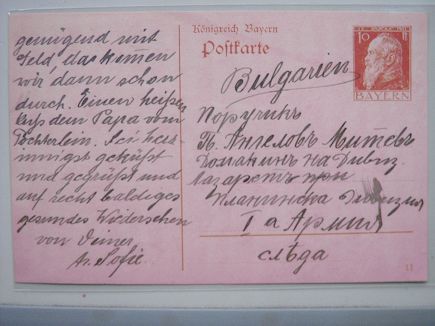 genügend mit
Geld, das kommen
wir dann schon
durch. Einen heißen
Kuß dem Papa vom
Töchterlein. Sei herz-
innigst geküßt
und gegrüßt und
auf recht baldiges
gesundes Wiedersehen
von Deiner
Sofie.
Königreich Bayern
Postkarte
10
BAYERN
Bulgarien
Поручикъ
П. Ангеловъ Митевъ
Домакинъ на Дивиз.
Лазаретъ при
Планинска Дивизия
I а Армия
следа
11